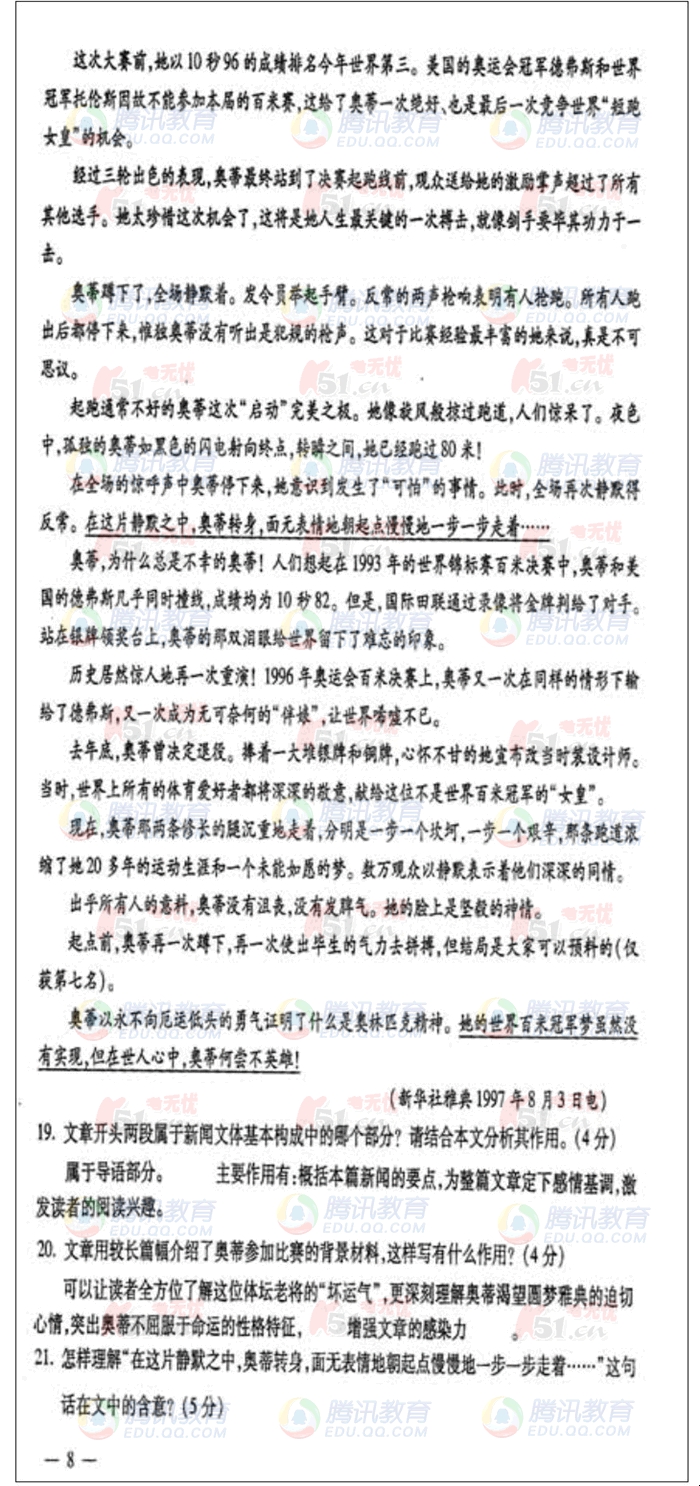 这次大赛前,她以10秒96的成绩排名今年世界第三。美国的奥运会冠军德弗斯和世界
冠军托伦斯因故不能参加本届的百米赛,这给了奥蒂一次绝好、也是最后一次竞争世界“短跑
女皇”的机会。
经过三轮出色的表现,奥蒂最终站到了决赛起跑线前,观众送给她的激励掌声超过了所有
其他选手。她太珍惜这次机会了,这将是她人生最关键的一次搏击,就像剑手要毕其功力于一
击。
奥蒂蹲下了,全场静默着。发令员举起手臂。反常的两声枪响表明有人抢跑。所有人跑
出后都停下来,惟独奥蒂没有听出是犯规的枪声。这对于比赛经验最丰富的她来说,真是不可
思议。
起跑通常不好的奥蒂这次“启动”完美之极。她像旋风般掠过跑道,人们惊呆了。夜色
中,孤独的奥蒂如黑色的闪电射向终点,转瞬之间,她已经跑过80米!
在全场的惊呼声中奥蒂停下来,她意识到发生了“可怕”的事情。此时,全场再次静默得
反常。在这片静默之中,奥蒂转身,面无表情地朝起点慢慢地一步一步走着……
奥蒂,为什么总是不幸的奥蒂!人们想起在1993年的世界锦标赛百米决赛中,奥蒂和美
国的德弗斯几乎同时撞线,成绩均为10秒82。但是,国际田联通过录像将金牌判给了对手。
站在银牌领奖台上,奥蒂的那双泪眼给世界留下了难忘的印象。
历史居然惊人地再一次重演!1996年奥运会百米决赛上,奥蒂又一次在同样的情形下输
给了德弗斯,又一次成为无可奈何的“伴娘”,让世界唏嘘不已。
去年底,奥蒂曾决定退役。捧着一大堆银牌和铜牌,心怀不甘的她宣布改当时装设计师。
当时,世界上所有的体育爱好者都将深深的敬意,献给这位不是世界百米冠军的“女皇”。
现在,奥蒂那两条修长的腿沉重地走着,分明是一步一个坎坷,一步一个艰辛,那条跑道浓
缩了她20多年的运动生涯和一个未能如愿的梦。数万观众以静默表示着他们深深的同情。
出乎所有人的意料,奥蒂没有沮丧,没有发脾气。她的脸上是坚毅的神情。
起点前,奥蒂再一次蹲下,再一次使出毕生的气力去拼搏,但结局是大家可以预料的(仅
获第七名)。
奥蒂以永不向厄运低头的勇气证明了什么是奥林匹克精神。她的世界百米冠军梦虽然没
有实现,但在世人心中,奥蒂何尝不英雄!
(新华社雅典1997年8月3日电)
19. 文章开头两段属于新闻文体基本构成中的哪个部分?请结合本文分析其作用。(4分)
属于导语部分。 主要作用有:概括本篇新闻的要点,为整篇文章定下感情基调,激
发读者的阅读兴趣。
20. 文章用较长篇幅介绍了奥蒂参加比赛的背景材料,这样写有什么作用?(4分)
可以让读者全方位了解这位体坛老将的“坏运气”,更深刻理解奥蒂渴望圆梦雅典的迫切
心情,突出奥蒂不屈服于命运的性格特征, 增强文章的感染力 。
21. 怎样理解“在这片静默之中,奥蒂转身,面无表情地朝起点慢慢地一步一步走着……”这句
话在文中的含意?(5分)
— 8 —
腾讯教育
EDU.QQ.COM
无忧
51.cn